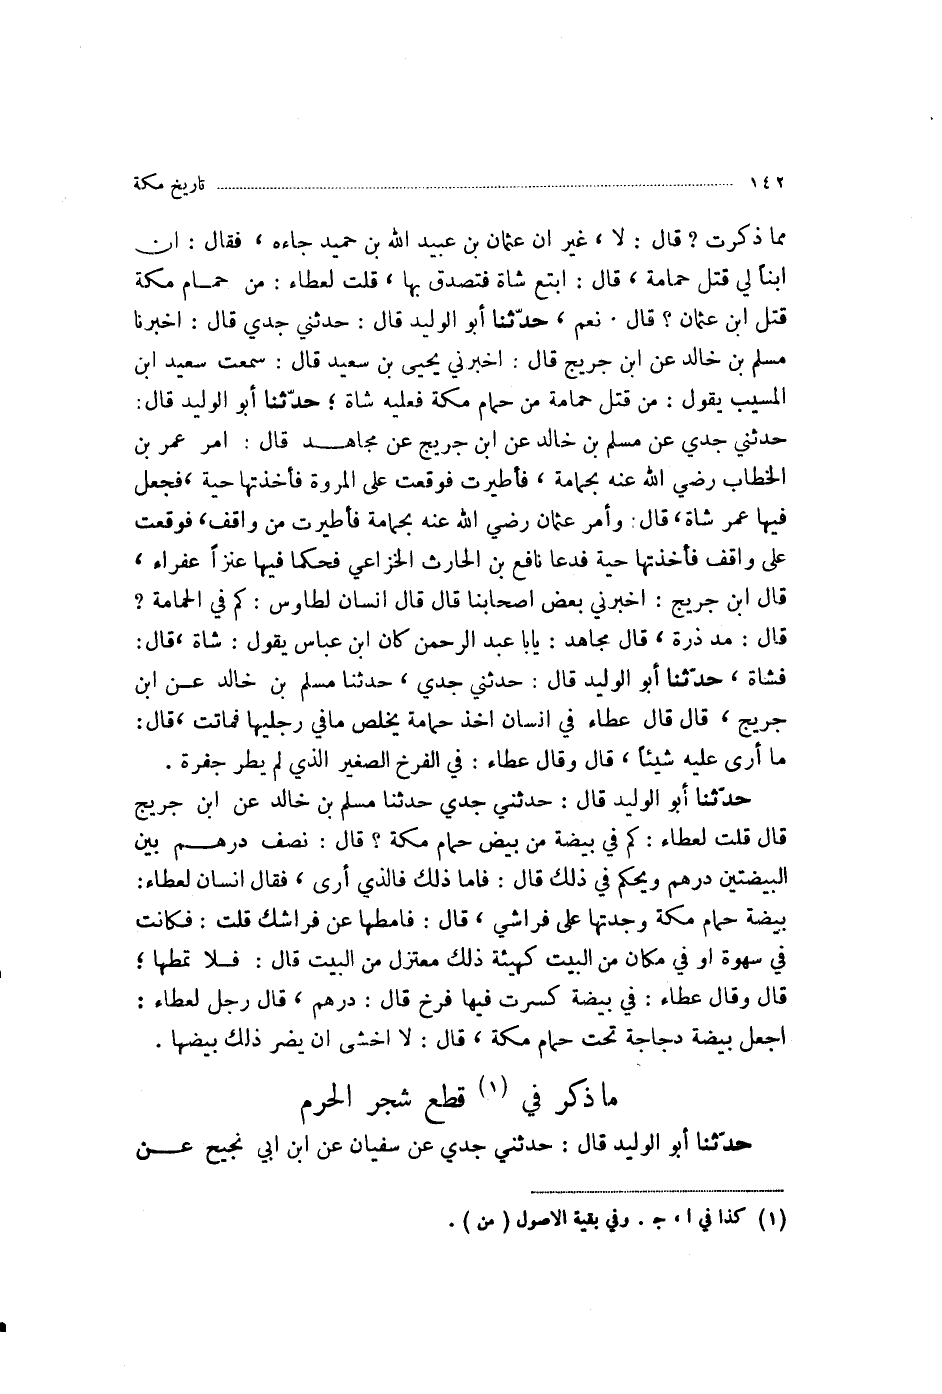 ١٤٢ ........ تاريخ مكة
مما ذكرت ? قال : لا ، غير ان عثمان بن عبيد الله بن حميد جاءه ، فقال : ان
ابناً لي قتل حمامة ، قال : ابتع شاة فتصدق بها ، قلت لعطاء : من حمــام مكة
قتل ابن عثمان ؟ قال . نعم ، حدّثنا أبو الوليد قال : حدثني جدي قال : اخبرنا
مسلم بن خالد عن ابن جريج قال : اخبرني يحيى بن سعيد قال : سمعت سعيد ابن
المسيب يقول : من قتل حمامة من حمام مكة فعليه شاة ؛ حدّثنا أبو الوليد قال:
حدثني جدي عن مسلم بن خالد عن ابن جريج عن مجاهــــد قال : امر عمر بن
الخطاب رضي الله عنه بحمامة ، فأطيرت فوقعت على المروة فأخذتها حية ،فجعل
فيها عمر شاة، قال: وأمر عثمان رضي الله عنه بحمامة فأطيرت من واقف، فوقعت
على واقف فأخذتها حية فدعا نافع بن الحارث الخزاعي فحكما فيها عنزاً عفراء ،
قال ابن جريج : اخبرني بعض اصحابنا قال قال انسان لطاوس : كم في الحمامة ?
قال : مد ذرة ، قال مجاهد : يابا عبد الرحمن كان ابن عباس يقول : شاة ،قال:
فشاة ، حدّثنا أبو الوليد قال : حدثني جدي ، حدثنا مسلم بن خالد عــن ابن
جريج ، قال قال عطاء في انسان اخذ حمامة يخلص مافي رجليها فماتت ،قال:
ما أرى عليه شيئاً ، قال وقال عطاء : في الفرخ الصغير الذي لم يطر جفرة .
حدّثنا أبو الوليد قال : حدثني جدي حدثنا مسلم بن خالد عن ابن جريج
قال قلت لعطاء : كم في بيضة من بيض حمام مكة ؟ قال : نصف درهـــم بين
البيضتين درهم ويحكم في ذلك قال : فاما ذلك فالذي أرى ، فقال انسان لعطاء:
بيضة حمام مكة وجدتها على فراشي ، قال : فامطها عن فراشك قلت : فكانت
في سهوة او في مكان من البيت كهيئة ذلك معتزل من البيت قال : فــلا تمطها ؛
قال وقال عطاء : في بيضة كسرت فيها فرخ قال : درهم ، قال رجل لعطاء :
اجعل بيضة دجاجة تحت حمام مكة ، قال : لا اخشى ان يضر ذلك بيضها .
ما ذكر في (١) قطع شجر الحرم
حدّثنا أبو الوليد قال : حدثني جدي عن سفيان عن ابن ابي نجيح عـــن
(١) كذا في ا ، ج . وفي بقية الاصول ( من ) .